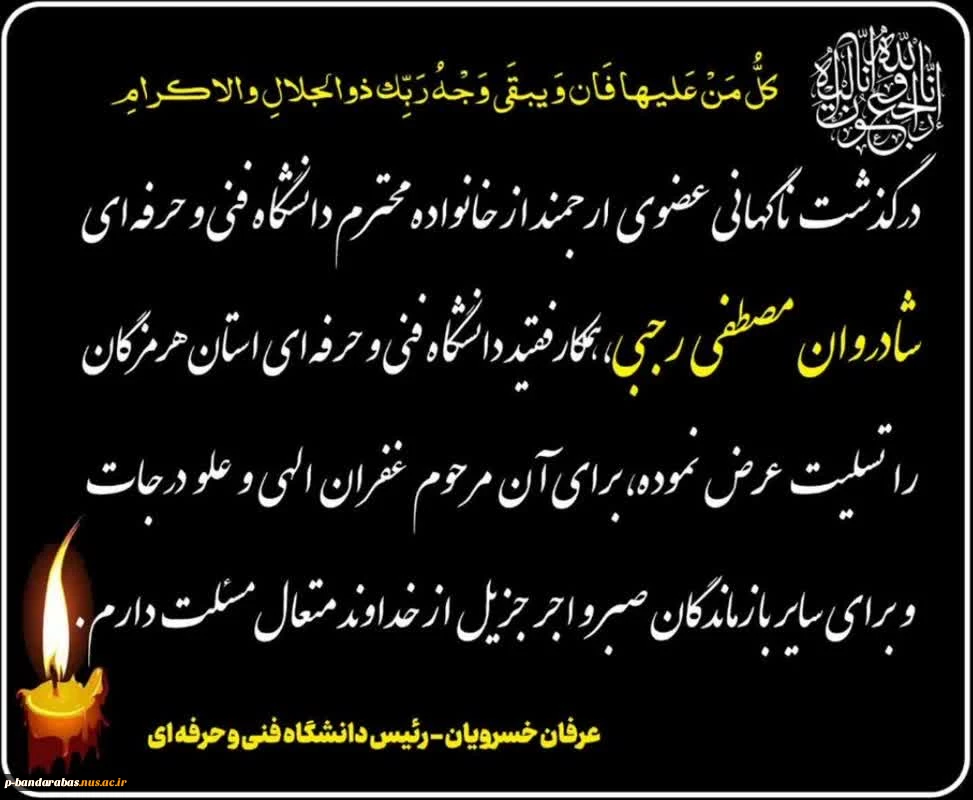 انا لله و انا الیه راجعون
كلُّ مَنْ عَليها فَان وَيبقَى وَجْهُ رَبِّك ذوالجلالِ والاكرامِ
درگذشت ناگهانی عضوی ارجمند از خانواده محترم دانشگاه فنی و حرفه ای
شادروان مصطفی رجبی، همکار فقید دانشگاه فنی و حرفه ای استان هرمزگان
را تسلیت عرض نموده، برای آن مرحوم غفران الهی و علو درجات
و برای سایر بازماندگان صبر و اجر جزیل از خداوند متعال مسئلت دارم.
عرفان خسرویان - رئیس دانشگاه فنی و حرفه ای
p-bandarabas.nus.ac.ir